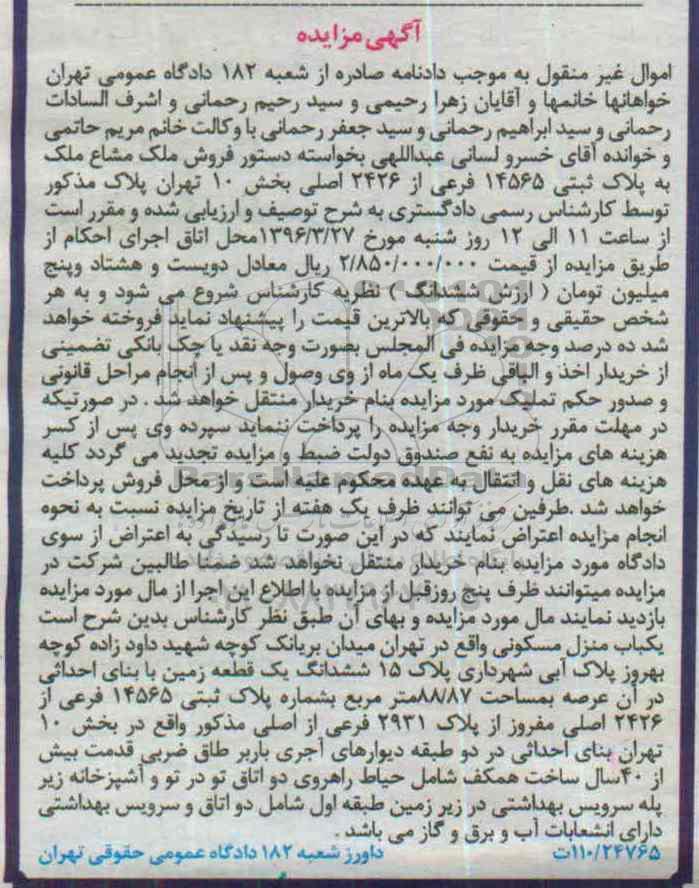 آگهی مزایده
اموال غیر منقول به موجب دادنامه صادره از شعبه ۱۸۲ دادگاه عمومی تهران
خواهانها خانمها و آقایان زهرا رحیمی و سید رحیم رحمانی و اشرف السادات
رحمانی و سید ابراهیم رحمانی و سید جعفر رحمانی با وکالت خانم مریم حاتمی
و خوانده آقای خسرو لسانی عبداللهی بخواسته دستور فروش ملک مشاع ملک
به پلاک ثبتی ۱۴۵۶۵ فرعی از ۲۴۲۶ اصلی بخش ۱۰ تهران پلاک مذکور
توسط کارشناس رسمی دادگستری به شرح توصیف و ارزیابی شده و مقرر است
از ساعت ۱۱ الی ۱۲ روز شنبه مورخ ۱۳۹۶/۳/۲۷محل اتاق اجرای احکام از
طریق مزایده از قیمت ۲/۸۵۰/۰۰۰/۰۰۰ ریال معادل دویست و هشتاد وپنج
میلیون تومان ( ارزش ششدانگ ) نظریه کارشناس شروع می شود و به هر
شخص حقیقی و حقوقی که بالاترین قیمت را پیشنهاد نماید فروخته خواهد
شد ده درصد وجه مزایده فی المجلس بصورت وجه نقد یا چک بانکی تضمینی
از خریدار اخذ و الباقی ظرف یک ماه از وی وصول و پس از انجام مراحل قانونی
و صدور حکم تملیک مورد مزایده بنام خریدار منتقل خواهد شد . در صورتیکه
در مهلت مقرر خریدار وجه مزایده را پرداخت ننماید سپرده وی پس از کسر
هزینه های مزایده به نفع صندوق دولت ضبط و مزایده تجدید می گردد کلیه
هزینه های نقل و انتقال به عهده محکوم علیه است و از محل فروش پرداخت
خواهد شد .طرفین می توانند ظرف یک هفته از تاریخ مزایده نسبت به نحوه
انجام مزایده اعتراض نمایند که در این صورت تا رسیدگی به اعتراض از سوی
دادگاه مورد مزایده بنام خریدار منتقل نخواهد شد ضمنا طالبین شرکت در
مزایده میتوانند ظرف پنج روزقبل از مزایده با اطلاع این اجرا از مال مورد مزایده
بازدید نمایند مال مورد مزایده و بهای آن طبق نظر کارشناس بدین شرح است
یکباب منزل مسکونی واقع در تهران میدان بریانک کوچه شهید داود زاده کوچه
بهروز پلاک آبی شهرداری پلاک ۱۵ ششدانگ یک قطعه زمین با بنای احداثی
در آن عرصه بمساحت ۸۸/۸۷متر مربع بشماره پلاک ثبتی ۱۴۵۶۵ فرعی از
۲۴۲۶ اصلی مفروز از پلاک ۲۹۳۱ فرعی از اصلی مذکور واقع در بخش ۱۰
تهران بنای احداثی در دو طبقه دیوارهای آجری باربر طاق ضربی قدمت بیش
از ۴۰سال ساخت همکف شامل حیاط راهروی دو اتاق تو در تو و آشپزخانه زیر
پله سرویس بهداشتی در زیر زمین طبقه اول شامل دو اتاق و سرویس بهداشتی
دارای انشعابات آب و برق و گاز می باشد .
۱۱۰/۲۴۷۶۵ت داورز شعبه ۱۸۲ دادگاه عمومی حقوقی تهران